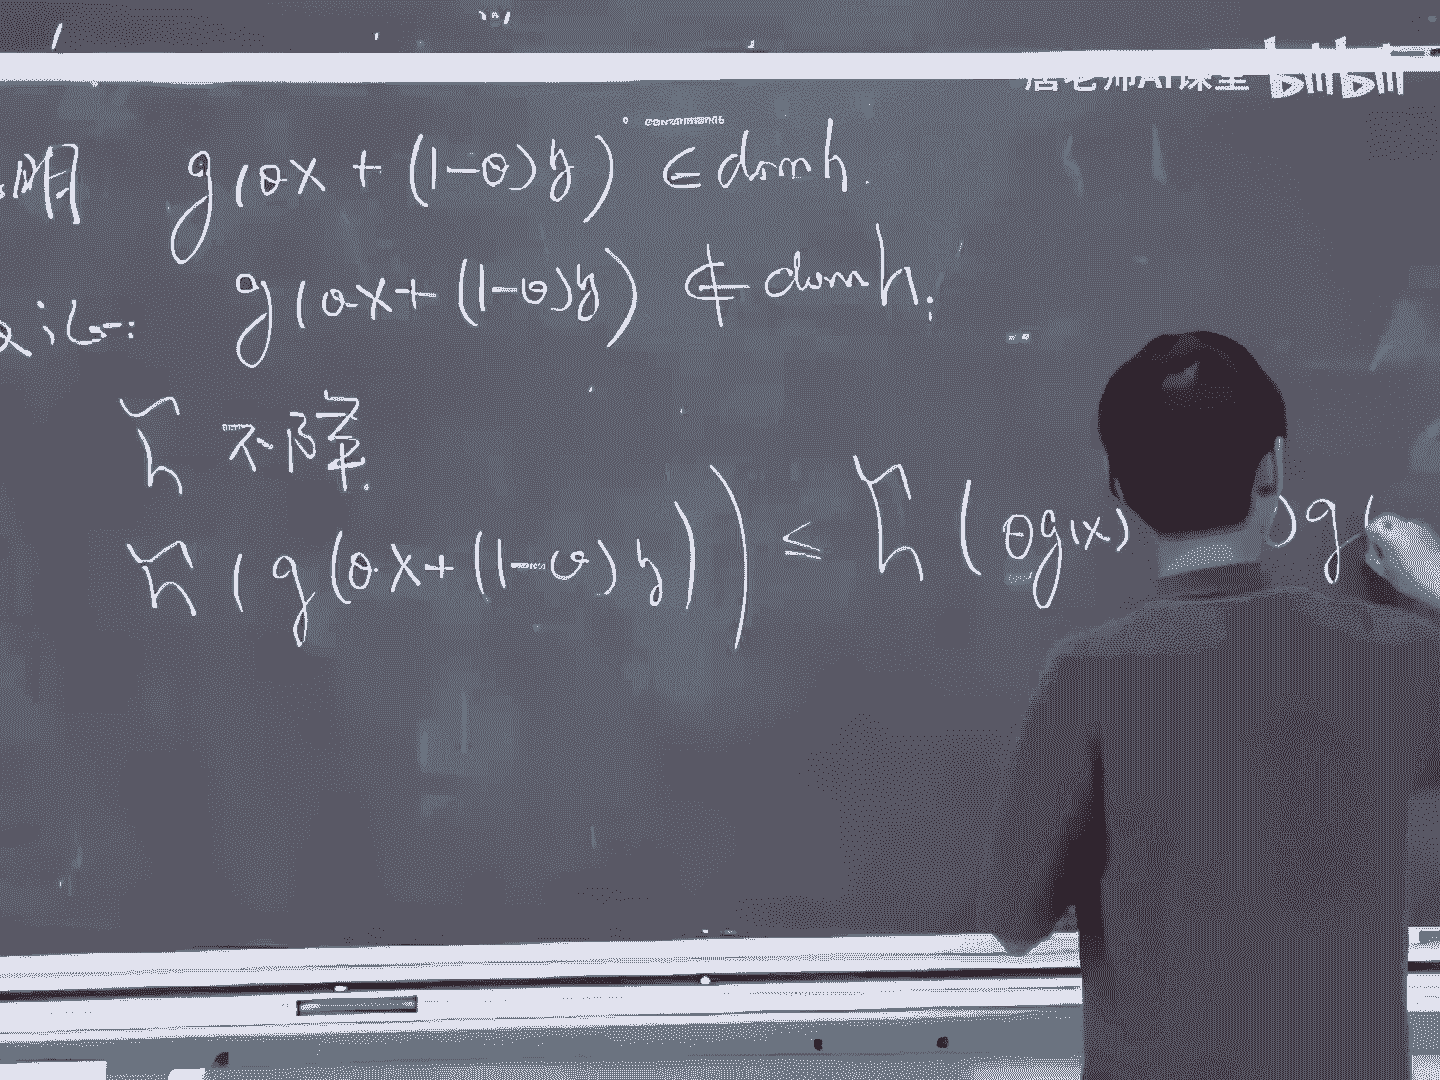 唐老师AI课堂 bilibili
明 g(θx + (1-θ)y) ∈ dom h.
g(θx + (1-θ)y) ∉ dom h.
h̃ 不降
h̃(g(θx + (1-θ)y)) ≤ h̃(θg(x) )g(